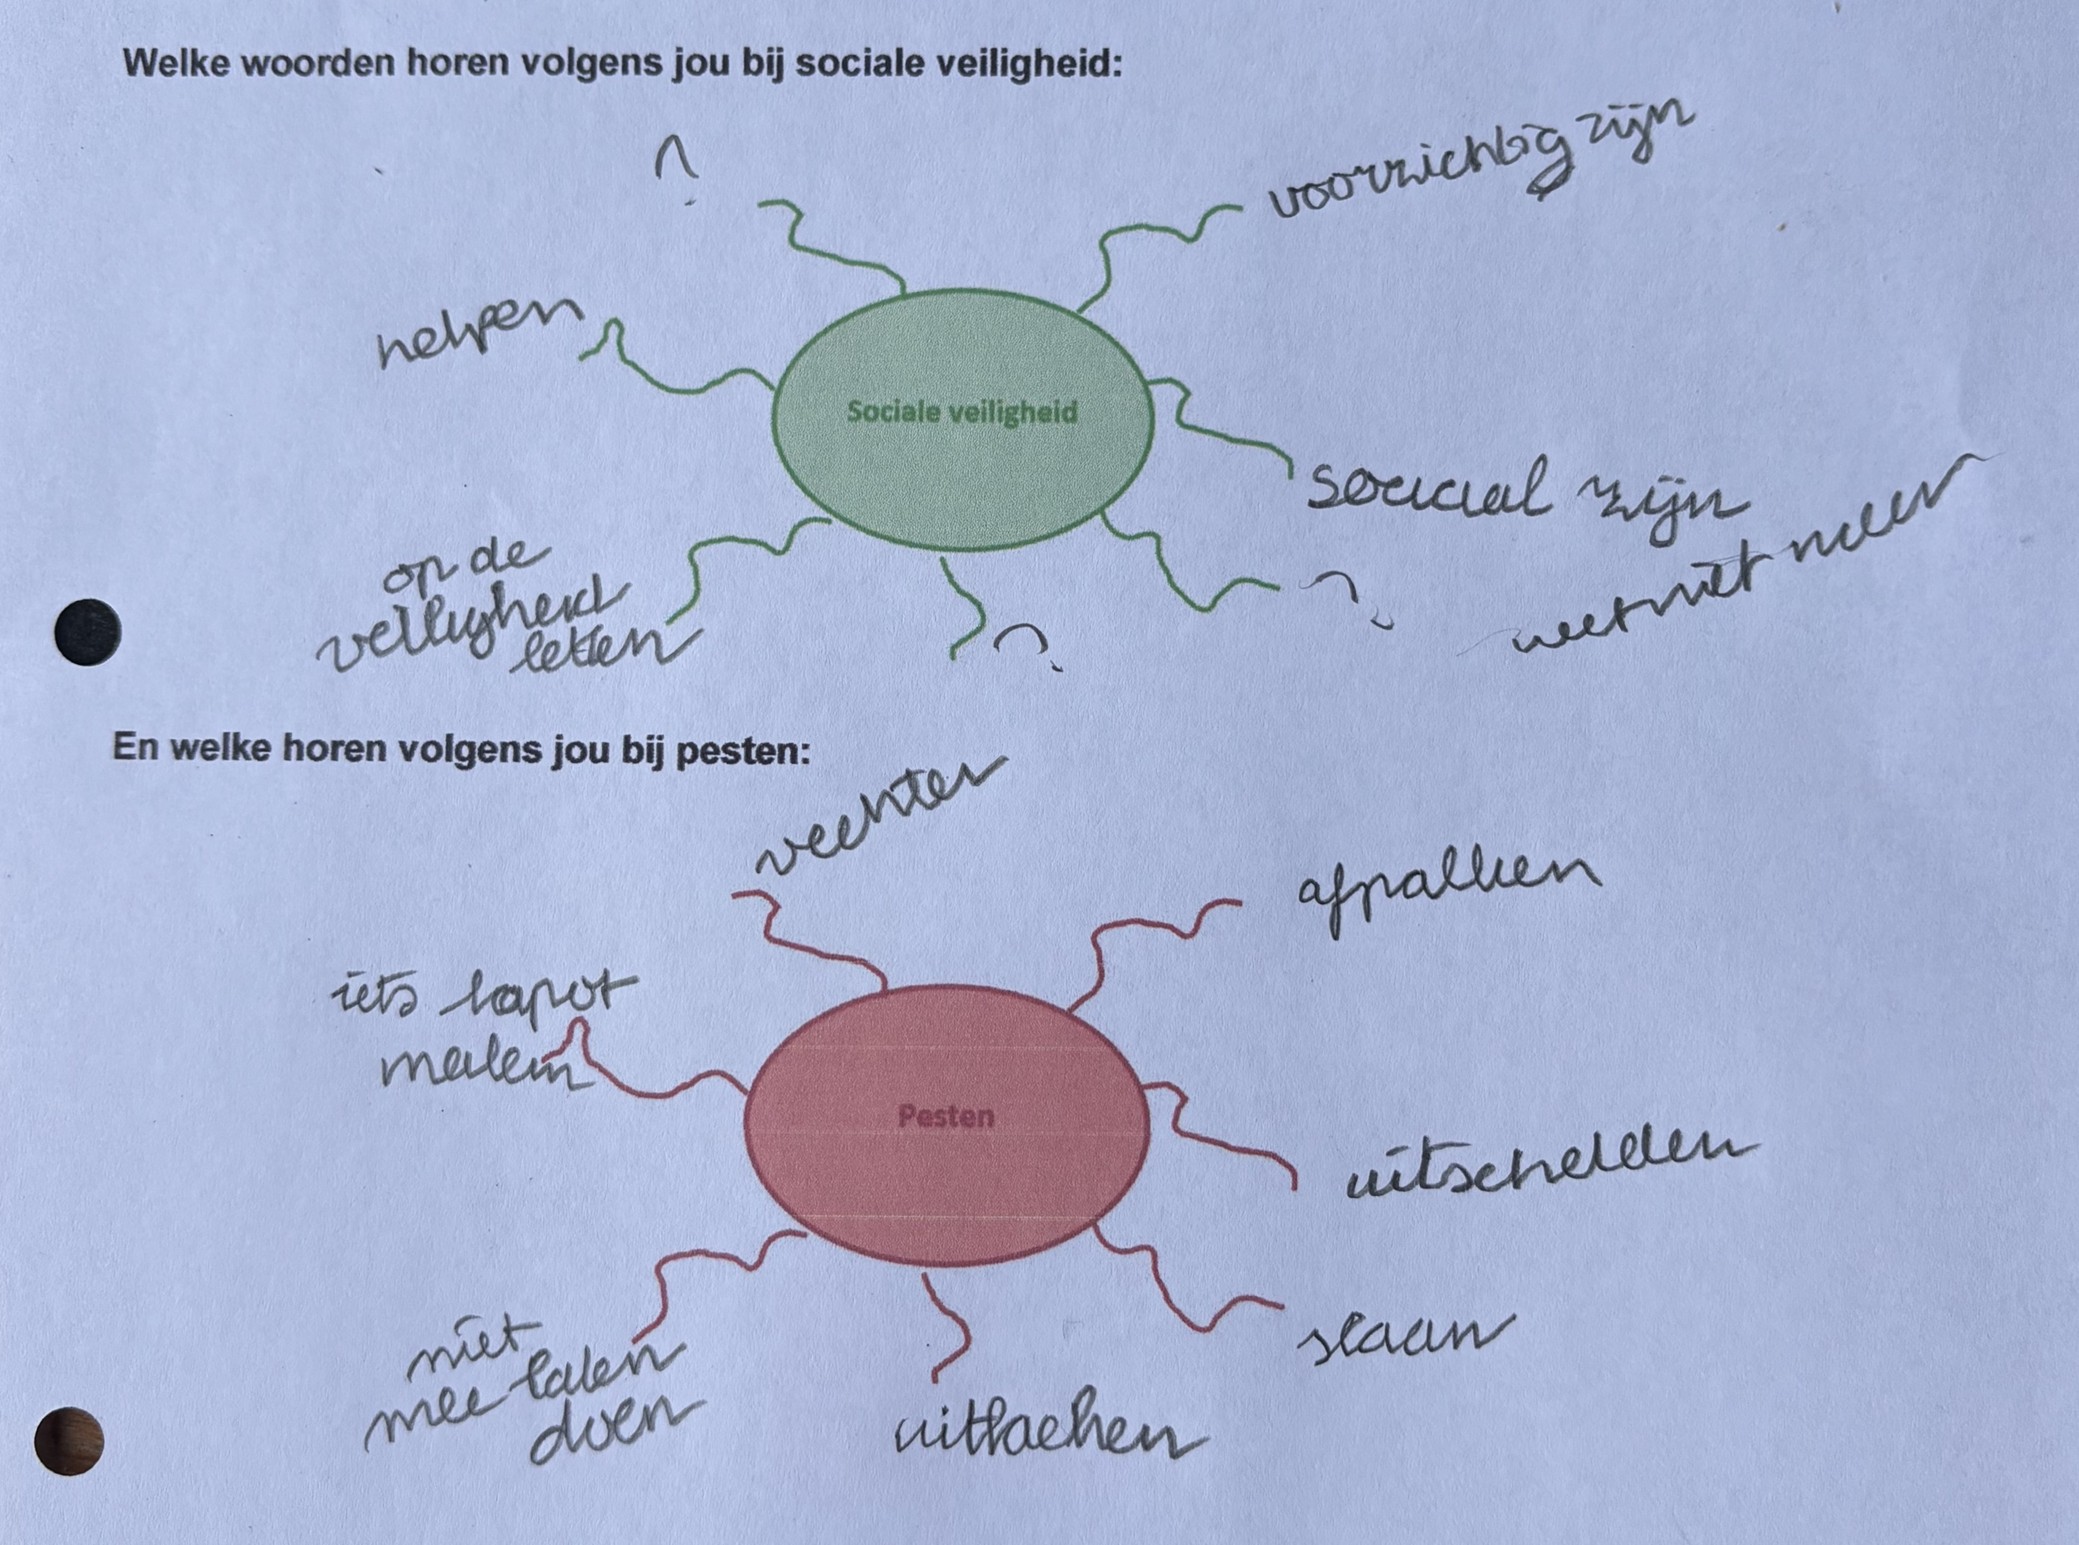 Welke woorden horen volgens jou bij sociale veiligheid:
?
voorzichtig zijn
helpen
Sociale veiligheid
sociaal zijn
op de
veiligheid
letten
?
?
weet niet meer
En welke horen volgens jou bij pesten:
vechten
afpakken
iets kapot
maken
Pesten
uitschelden
niet
mee laten
doen
slaan
uitlachen